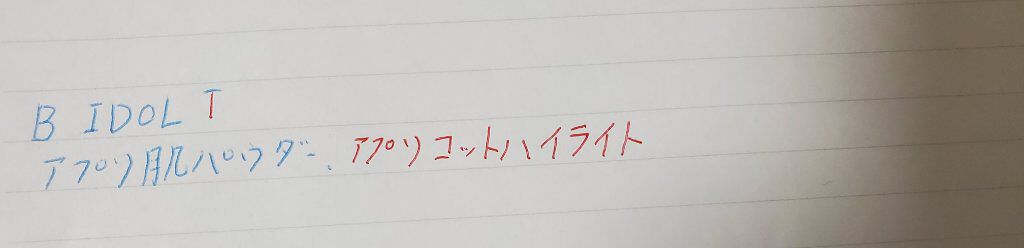 B IDOL T
アプリ肌パウダー、アプリコットハイライト